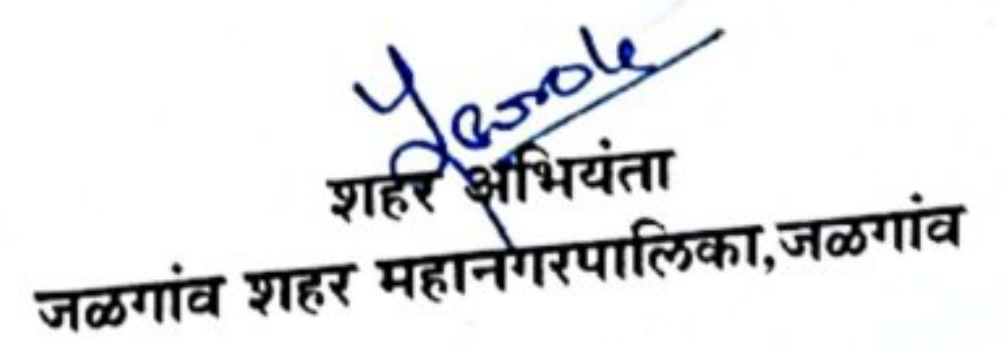 शहर अभियंता
जळगांव शहर महानगरपालिका,जळगांव